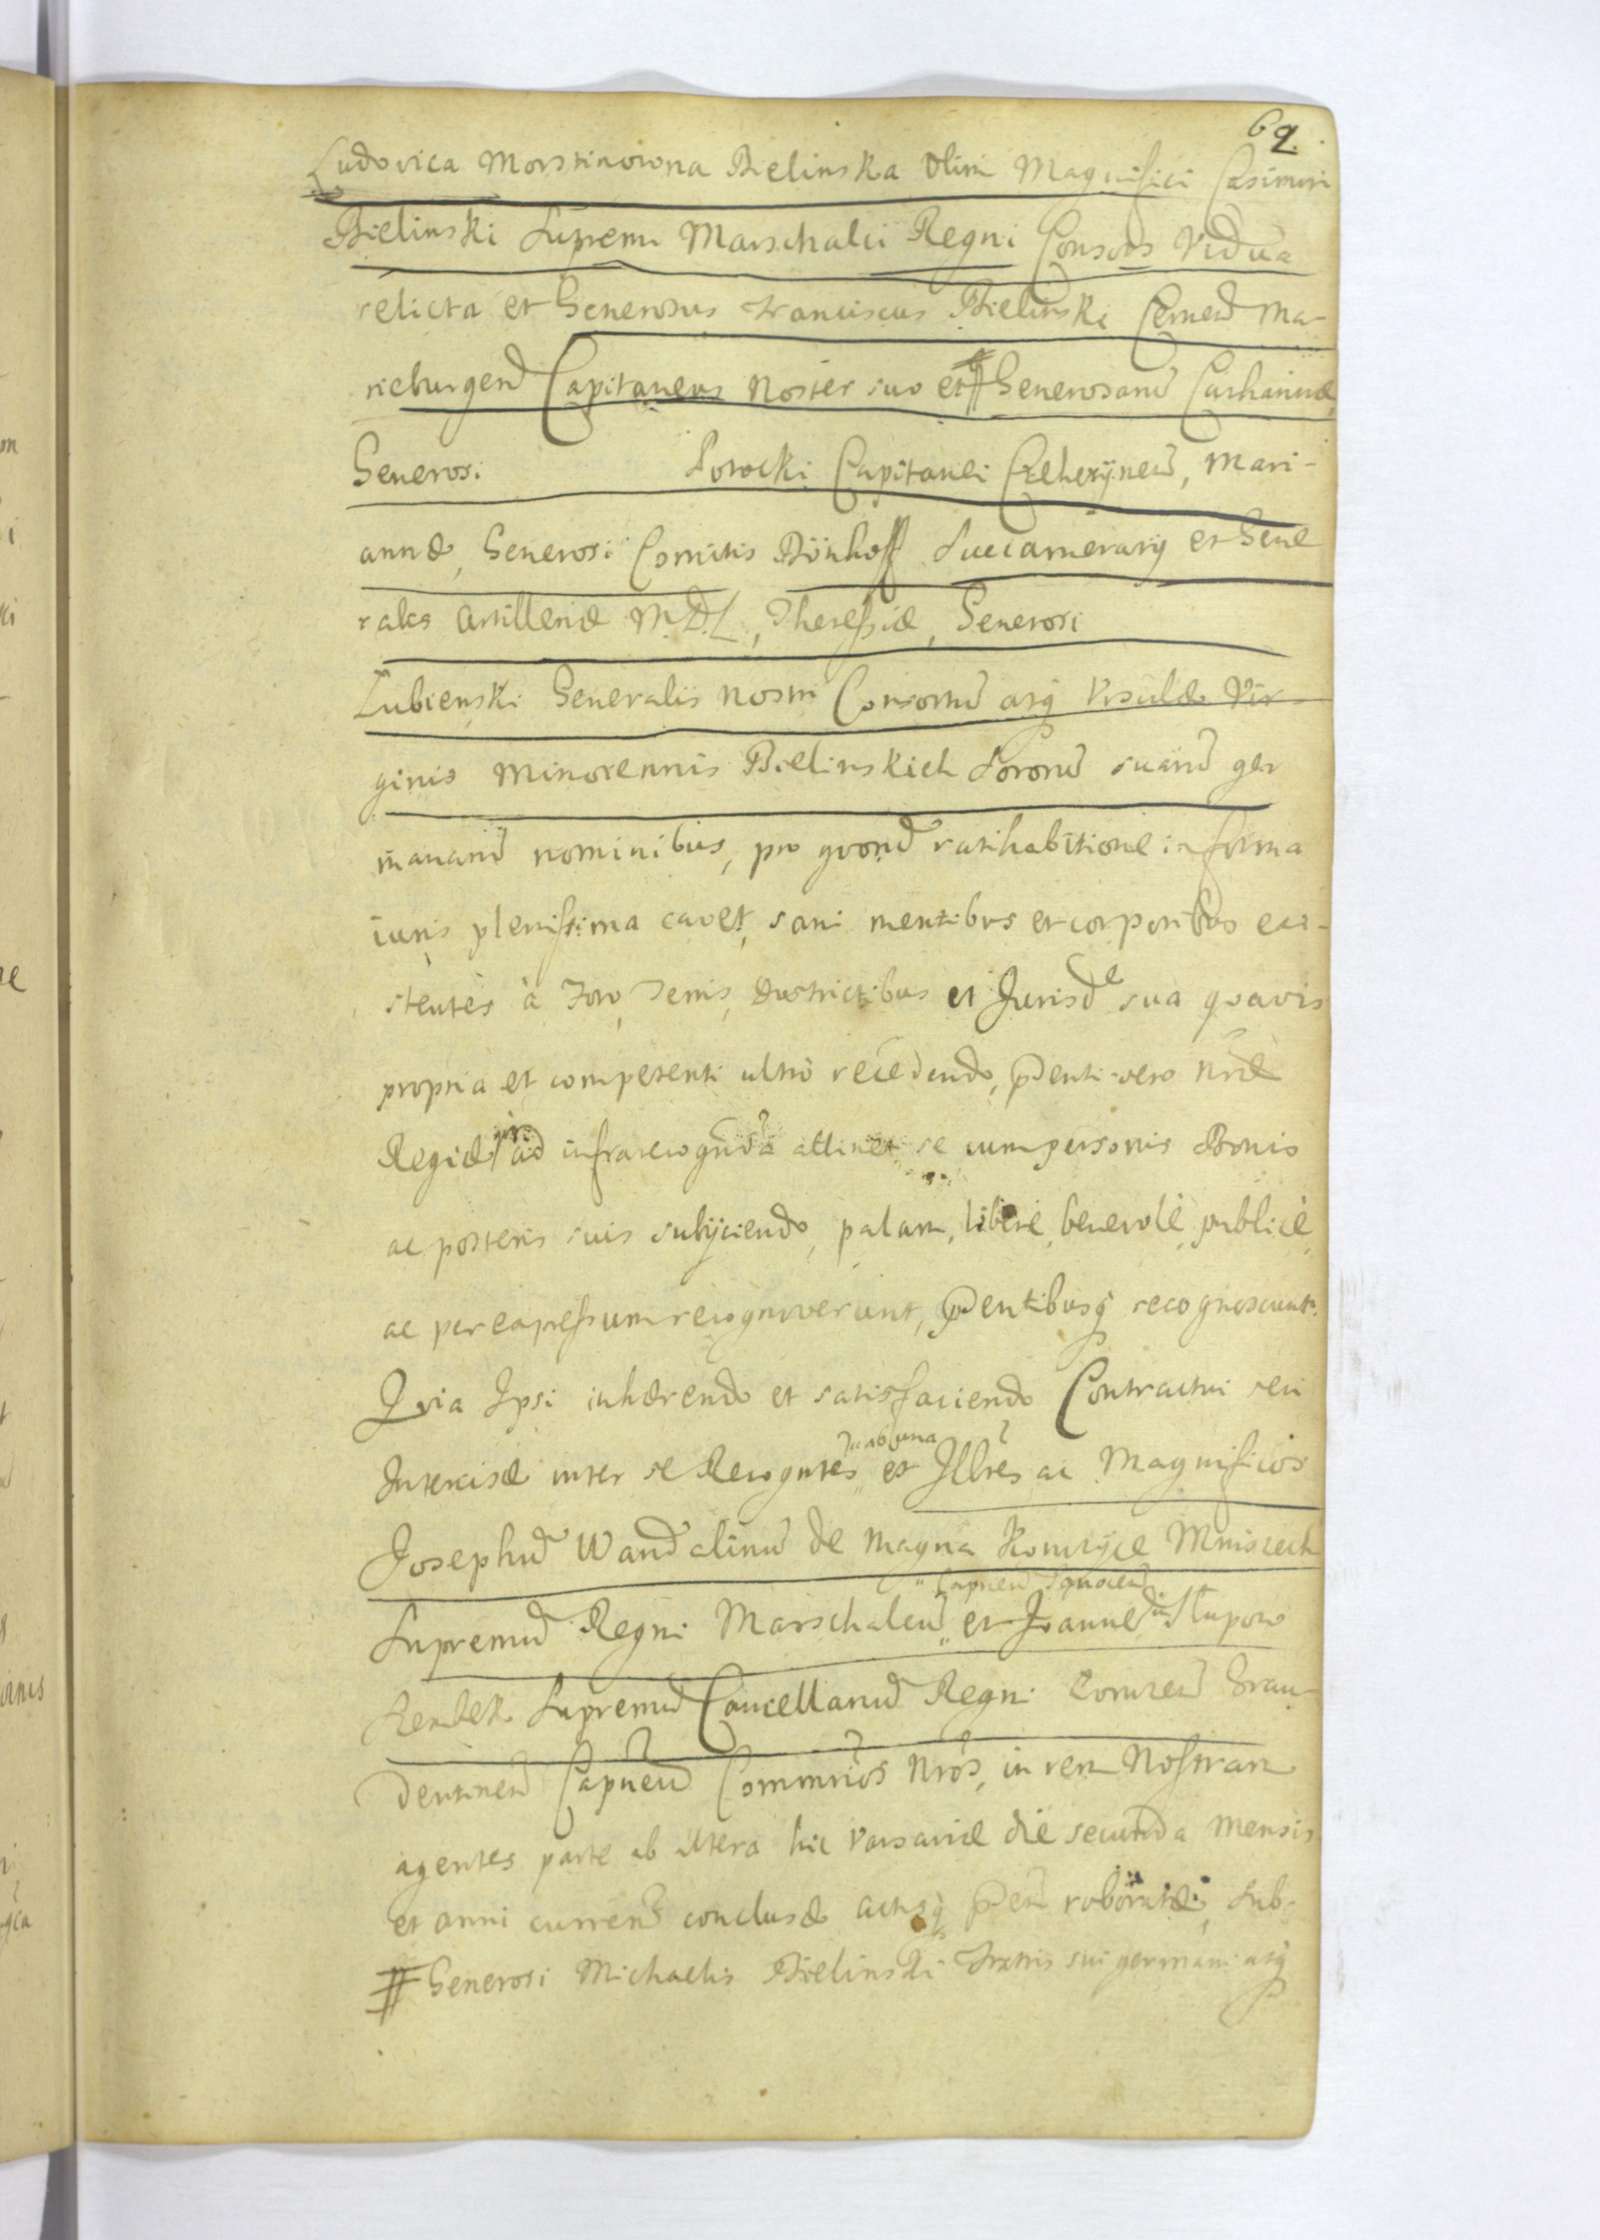 62.
Ludovica Morstinowna Bielinska Olim Magnifici Casimiri
Bielinski Supremi Marschalci Regni Consors Vidua
relicta et Generosus Franciscus Bielinski Czernen Ma-
rieburgen Capitaneus Noster suo et # Generosarum Catharinæ,
Generosi Potocki Capitanei Czehrynen, Mari-
annæ, Generosi Comitis Dönhoff Succamerarij et Gene
rales Artilleriæ M.D.L., Theressiæ, Generosi
Lubienski Generalis Nostri Consortum atq Ursulæ Vir-
ginis Minorennis Bielinskich Sororum suarum ger
manarum nominibus, pro quorum ratihabitione in forma
iuris plenissima cavet, sani mentibus et corporibus exi-
stentes à Foro, Terris, Districtibus et Jurisdne sua quavis
propria et competenti ultrò recedendo, Pnti vero Nræ
Regiæ, ad infrarecognda attinet se cum personis Bonis
ac posteris suis subijciendo, palam, liberè, benevolè, publicè,
ac per expressum recognoverunt, Pntibusq recognoscunt.
Quia Ipsi inhærendo et satisfaciendo Contractui seu
Intercisæ inter se Recogntes " ab una
et Illres ac Magnificos
Josephum Wandalinum de Magna Konczyce Mniszech
Supremum Regni Marschalcum " Capneum
et Joannem in Słupow
Szembek Supremum Cancellarium Regni Grau-
dentinen Capneum Commrios Nros, in rem Nostram
agentes parte ab altera hic Varsaviæ die secunda Mensis
et anni curren conclusæ actisq Pnt roboratæ, sub-
# Generosi Michaelis Bielinski Fratris sui germani atq